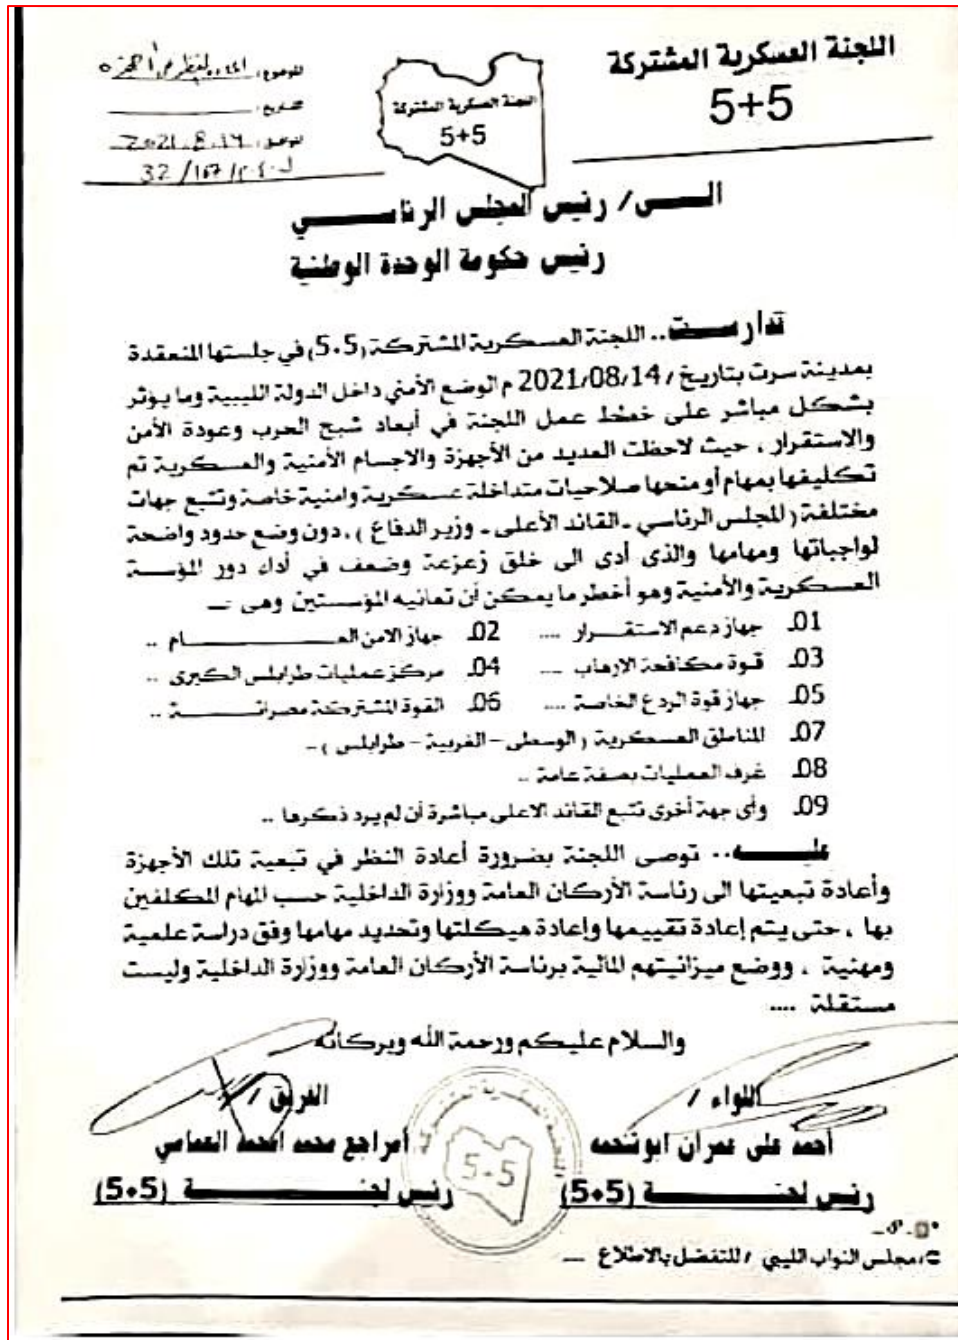 اللجنة العسكرية المشتركة
5+5
اللجنة العسكرية المشتركة
5+5
2021.8.14
الـــــى/ رئيس المجلس الرئاســـــي
رئيس حكومة الوحدة الوطنية
تدارســـت.. اللجنة العسكرية المشتركة (5.5) في جلستها المنعقدة
بمدينة سرت بتاريخ / 2021/08/14 م الوضع الأمني داخل الدولة الليبية وما يؤثر
بشكل مباشر على خطط عمل اللجنة في أبعاد شبح الحرب وعودة الأمن
والاستقرار ، حيث لاحظت العديد من الأجهزة والاجسام الأمنية والعسكرية تم
تكليفها بمهام أو منحها صلاحيات متداخلة عسكرية وامنية خاصة وتتبع جهات
مختلفة ( المجلس الرئاسي - القائد الأعلى - وزير الدفاع ) ، دون وضع حدود واضحة
لواجباتها ومهامها والذى أدى الى خلق زعزعة وضعف في أداء دور المؤسسة
العسكرية والأمنية وهو أخطر ما يمكن أن تعانيه المؤسستين وهى :-
01ـ جهاز دعم الاستقـــرار .... 02ـ جهاز الامن العـــــــــام ..
03ـ قوة مكافحة الارهاب .... 04ـ مركز عمليات طرابلس الكبرى ..
05ـ جهاز قوة الردع الخاصة .... 06ـ القوة المشتركة مصراتـــــــة ..
07ـ المناطق العسكرية ( الوسطى - الغربية - طرابلس ) -
08ـ غرف العمليات بصفة عامة ..
09ـ وأى جهة أخرى تتبع القائد الاعلى مباشرة أن لم يرد ذكرها ..
عليـــــه.. توصى اللجنة بضرورة أعادة النظر في تبعية تلك الأجهزة
وأعادة تبعيتها الى رئاسة الأركان العامة ووزارة الداخلية حسب المهام المكلفين
بها ، حتى يتم إعادة تقييمها وإعادة هيكلتها وتحديد مهامها وفق دراسة علمية
ومهنية ، ووضع ميزانيتهم المالية برئاسة الأركان العامة ووزارة الداخلية وليست
مستقلة ....
والسلام عليكم ورحمة الله وبركاته
اللواء / الفريق /
أحمد على عمران ابوشحمه امراجع محمد امحمد العمامي
رئيس لجنـــــــــة (5+5) رئيس لجنـــــــــة (5+5)
5-5
مجلس النواب الليبي / للتفضل بالاطلاع